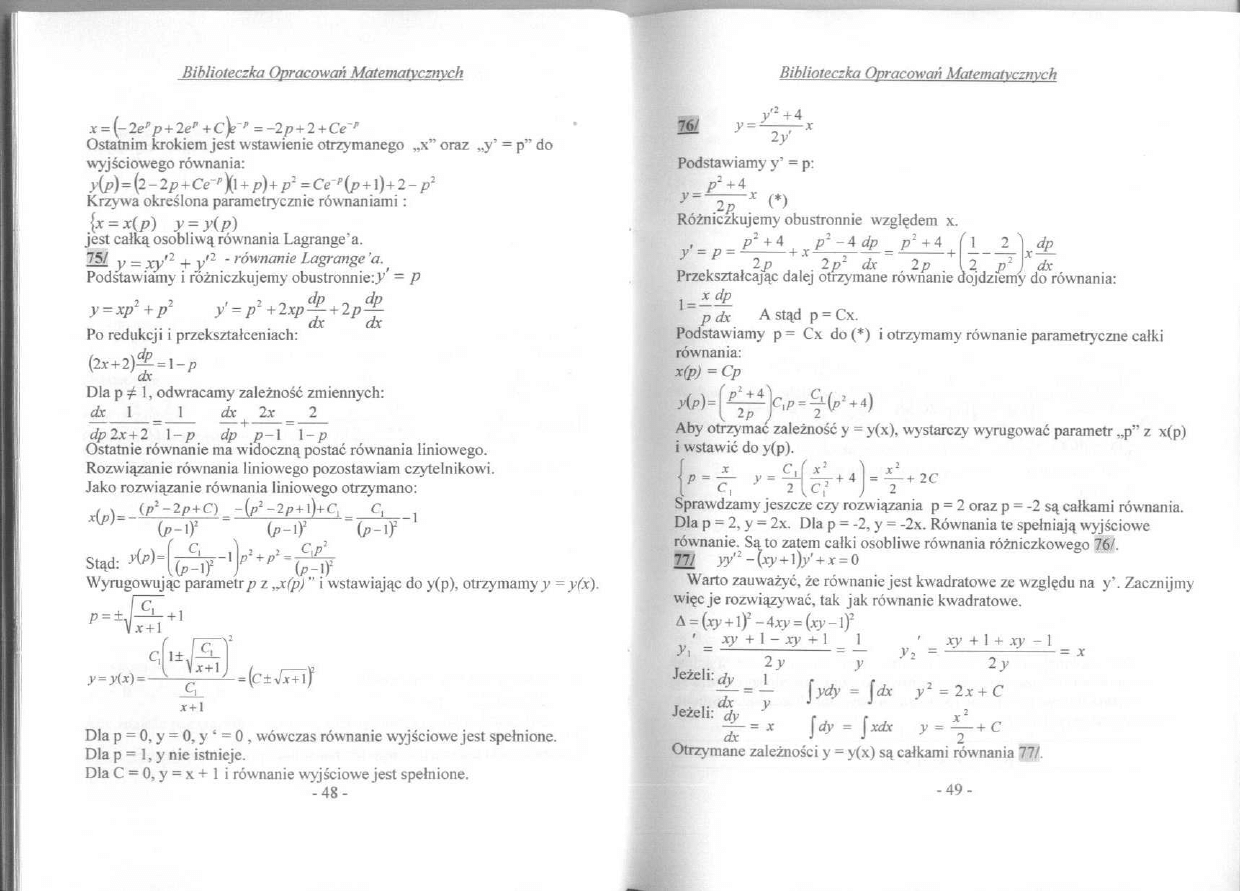 Biblioteczka Opracowań Matematycznych
x = (-2eᵖp + 2eᵖ + C)e⁻ᵖ = -2p + 2 + Ce⁻ᵖ
Ostatnim krokiem jest wstawienie otrzymanego „x” oraz „y’ = p” do
wyjściowego równania:
y(p) = (2 - 2p + Ce⁻ᵖ)(1 + p) + p² = Ce⁻ᵖ(p + 1) + 2 - p²
Krzywa określona parametrycznie równaniami :
{x = x(p) y = y(p)
jest całką osobliwą równania Lagrange’a.
75/ y = xy'² + y'² - równanie Lagrange’a.
Podstawiamy i różniczkujemy obustronnie: y' = p
y = xp² + p² y' = p² + 2xp dp/dx + 2p dp/dx
Po redukcji i przekształceniach:
(2x+2) dp/dx = 1 - p
Dla p ≠ 1, odwracamy zależność zmiennych:
dx/dp 1/(2x+2) = 1/(1-p) dx/dp + 2x/(p-1) = 2/(1-p)
Ostatnie równanie ma widoczną postać równania liniowego.
Rozwiązanie równania liniowego pozostawiam czytelnikowi.
Jako rozwiązanie równania liniowego otrzymano:
x(p) = - (p² - 2p + C)/(p-1)² = (-(p² - 2p + 1) + C₁)/(p-1)² = C₁/(p-1)² - 1
Stąd: y(p) = (C₁/(p-1)² - 1)p² + p² = C₁p²/(p-1)²
Wyrugowując parametr p z „x(p)” i wstawiając do y(p), otrzymamy y = y(x).
p = ±√(C₁/(x+1)) + 1
y = y(x) = C₁(1 ± √(C₁/(x+1)))² / (C₁/(x+1)) = (C ± √(x+1))²
Dla p = 0, y = 0, y ‘ = 0 , wówczas równanie wyjściowe jest spełnione.
Dla p = 1, y nie istnieje.
Dla C = 0, y = x + 1 i równanie wyjściowe jest spełnione.
- 48 -
Biblioteczka Opracowań Matematycznych
76/ y = (y'² + 4)/(2y') x
Podstawiamy y’ = p:
y = (p² + 4)/(2p) x (*)
Różniczkujemy obustronnie względem x.
y' = p = (p² + 4)/(2p) + x (p² - 4)/(2p²) dp/dx = (p² + 4)/(2p) + (1/2 - 2/p²) x dp/dx
Przekształcając dalej otrzymane równanie dojdziemy do równania:
1 = x/p dp/dx A stąd p = Cx.
Podstawiamy p = Cx do (*) i otrzymamy równanie parametryczne całki
równania:
x(p) = Cp
y(p) = ((p² + 4)/(2p)) C₁p = C₁/2 (p² + 4)
Aby otrzymać zależność y = y(x), wystarczy wyrugować parametr „p” z x(p)
i wstawić do y(p).
{p = x/C₁ y = C₁/2 (x²/C₁² + 4) = x²/2 + 2C
Sprawdzamy jeszcze czy rozwiązania p = 2 oraz p = -2 są całkami równania.
Dla p = 2, y = 2x. Dla p = -2, y = -2x. Równania te spełniają wyjściowe
równanie. Są to zatem całki osobliwe równania różniczkowego 76/.
77/ yy'² - (xy + 1)y' + x = 0
Warto zauważyć, że równanie jest kwadratowe ze względu na y’. Zacznijmy
więc je rozwiązywać, tak jak równanie kwadratowe.
Δ = (xy + 1)² - 4xy = (xy - 1)²
y₁' = (xy + 1 - xy + 1)/(2y) = 1/y y₂' = (xy + 1 + xy - 1)/(2y) = x
Jeżeli: dy/dx = 1/y ∫ydy = ∫dx y² = 2x + C
Jeżeli: dy/dx = x ∫dy = ∫xdx y = x²/2 + C
Otrzymane zależności y = y(x) są całkami równania 77/.
- 49 -